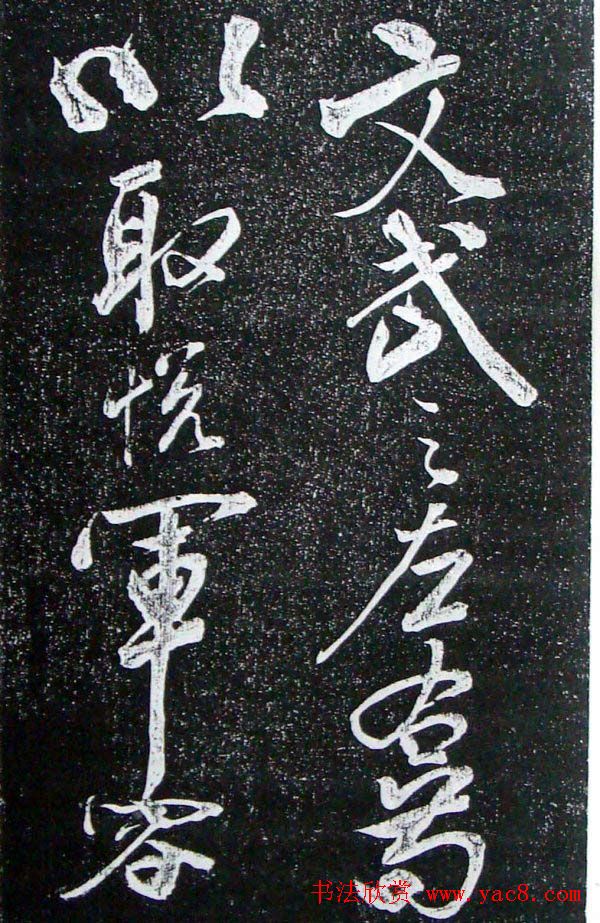 文武之左右苟
以取悦軍容
书法欣赏 www.yac8.com